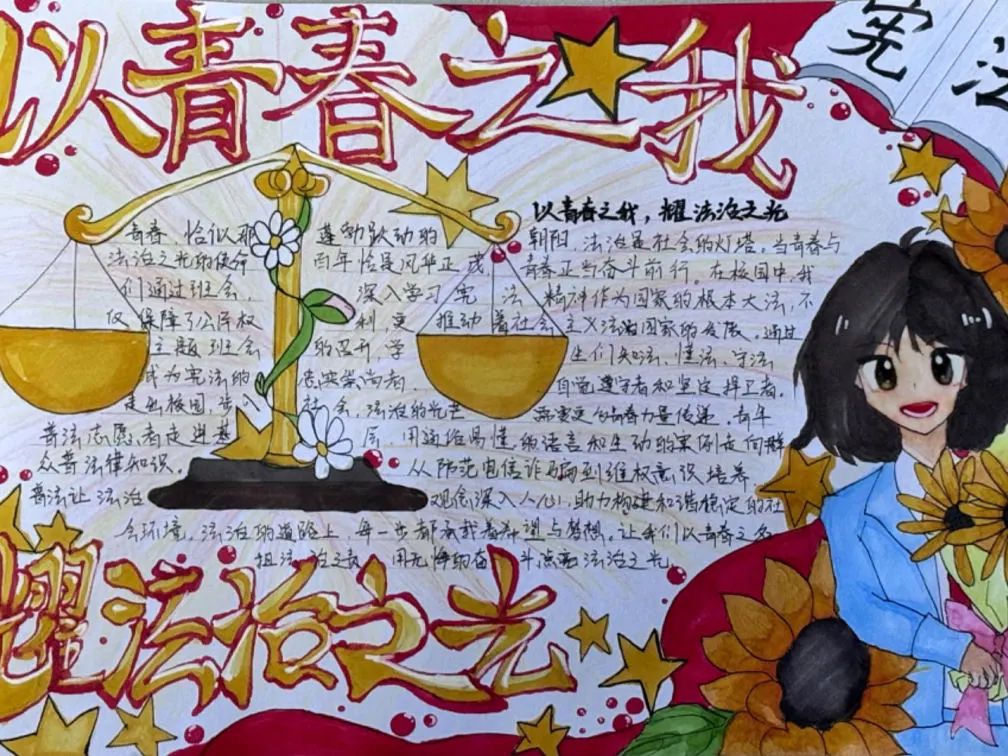 以青春之我
宪法
以青春之我，耀法治之光
青春，恰似那蓬勃跃动的朝阳，法治是社会的灯塔。当青春与
法治之光的使命百年恰是风华正茂青春正当奋斗前行。在校园中，我
们通过班会，深入学习宪法精神作为国家的根本大法，不
仅保障了公民权利，更推动着社会主义法治国家的发展。通过
主题班会的召开，学生们知法、懂法、守法
成为宪法的忠实崇尚者，自觉遵守者和坚定捍卫者。
走出校园，步入社会，法治的光芒青春力量传递。青年
普法志愿者走进基层，用通俗易懂的语言和生动的案例走向群
众普法律知识。从防范电信诈骗到维权意识培养
普法让法治观念深入人心，助力构建和谐稳定的社
会环境。法治的道路上，每一步都承载着希望与梦想。让我们以青春之名
担法治之责，用无悔的奋斗点亮法治之光
耀法治之光